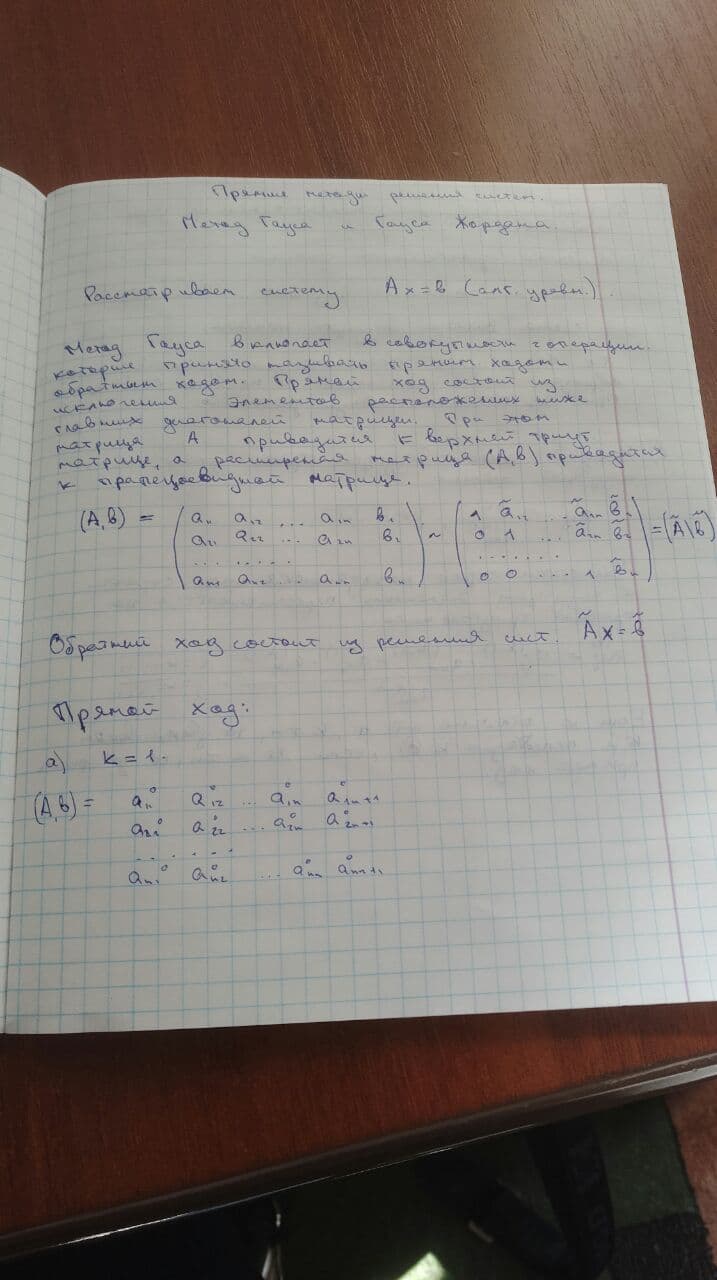 Прямие методи решения систем.
Метод Гауса и Гауса Жордана.
Рассматриваем систему Ax=в (алг. уравн.).
Метод Гауса включает в совокупности 2 операции.
которие принято називать прямим ходом и
обратним ходом. Прямой ход состоит из
исключения элементов расположених ниже
главних диагоналей матрицеи. При этом
матрица А приводится к верхней треуг
матрице, а расширеная матрица (А,в) приводится
к трапецоевидной матрице.
(A,в) = ( a₁₁ a₁₂ ... a₁ₙ в₁ ) ~ ( 1 ã₁₂ ... ã₁ₙ в̃₁ )
( a₂₁ a₂₂ ... a₂ₙ в₂ ) ( 0 1 ... ã₂ₙ в̃₂ ) = (Ã\в̃)
( ......... ) ( ....... )
( aₙ₁ aₙ₂ ... aₙₙ вₙ ) ( 0 0 ... 1 в̃ₙ )
Обратний ход состоит из решения сист. Ãx=в̃
Прямой ход:
а) k=1.
(A,в) = a₁₁⁰ a₁₂⁰ ... a₁ₙ⁰ a₁ₙ₊₁⁰
a₂₁⁰ a₂₂⁰ ... a₂ₙ⁰ a₂ₙ₊₁⁰
.......
aₙ₁⁰ aₙ₂⁰ ... aₙₙ⁰ aₙₙ₊₁⁰